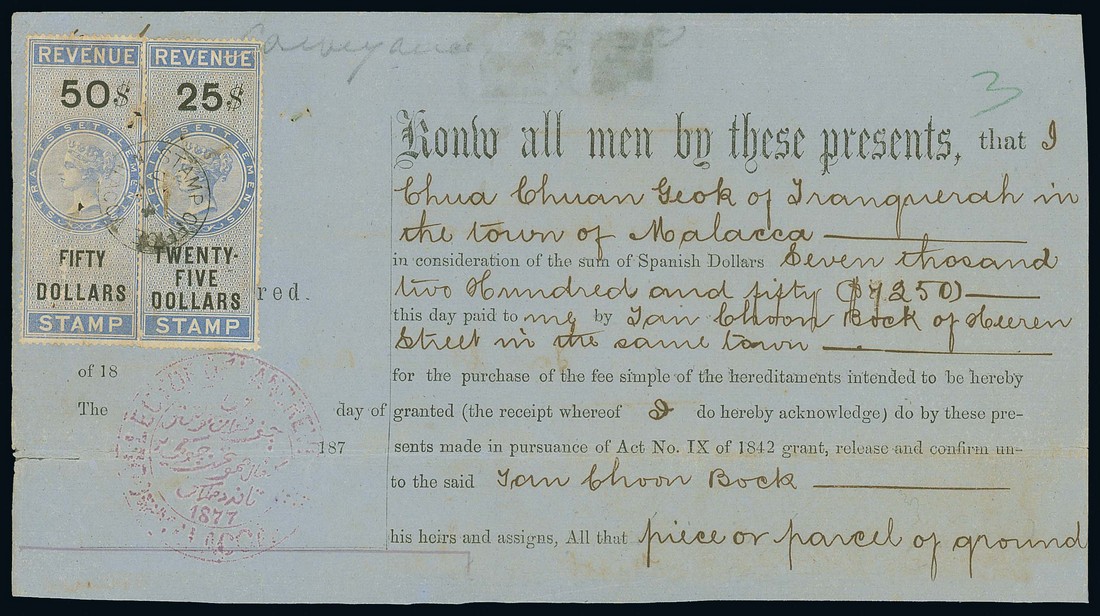 Conveyance
REVENUE
50$
STRAITS SETTLEMENTS
FIFTY
DOLLARS
STAMP
REVENUE
25$
STRAITS SETTLEMENTS
TWENTY-
FIVE
DOLLARS
STAMP
STAMP OFFICE
3
red.
of 18
The day of
187
1877
Konw all men by these presents, that I
Chua Chuan Geok of Tranquerah in
the town of Malacca
in consideration of the sum of Spanish Dollars Seven thosand
two Hundred and fifty ($7,250)
this day paid to me by Tan Choon Bock of Heeren
Street in the same town
for the purchase of the fee simple of the hereditaments intended to be hereby
granted (the receipt whereof I do hereby acknowledge) do by these pre-
sents made in pursuance of Act No. IX of 1842 grant, release and confirm un-
to the said Tan Choon Bock
his heirs and assigns, All that piece or parcel of ground